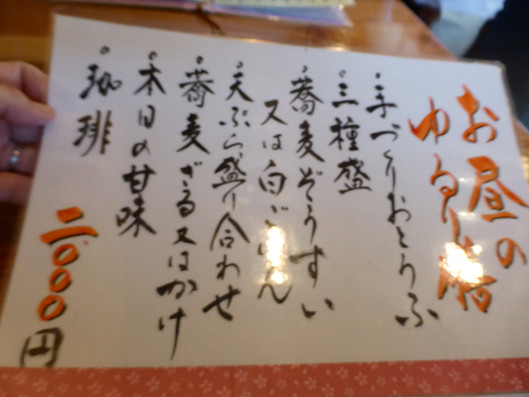 お昼の
ゆるり膳
・手づくりおとうふ
・三種盛
・蕎麦ぞうすい
又は白ごはん
・天ぷら盛り合わせ
・蕎麦ざる又はかけ
・本日の甘味
・珈琲
二〇〇〇円